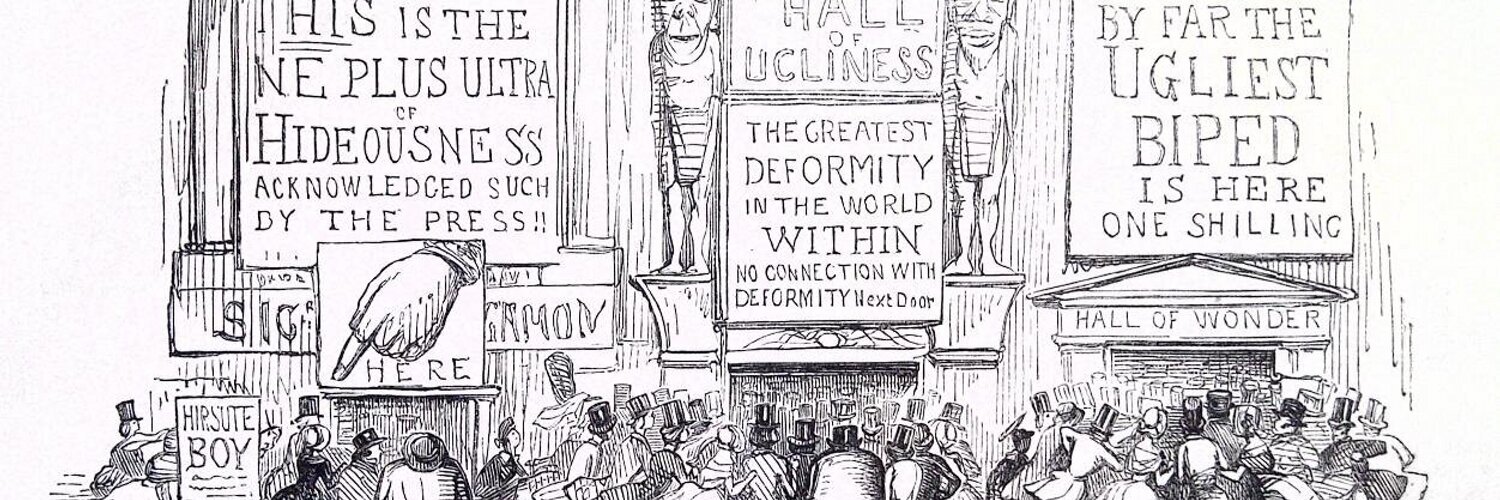 THIS IS THE
NE PLUS ULTRA
OF
HIDEOUSNESS
ACKNOWLEDGED SUCH
BY THE PRESS!!
HERE
HIRSUTE
BOY
HALL
OF
UGLINESS
THE GREATEST
DEFORMITY
IN THE WORLD
WITHIN
NO CONNECTION WITH
DEFORMITY Next Door
BY FAR THE
UGLIEST
BIPED
IS HERE
ONE SHILLING
HALL OF WONDER